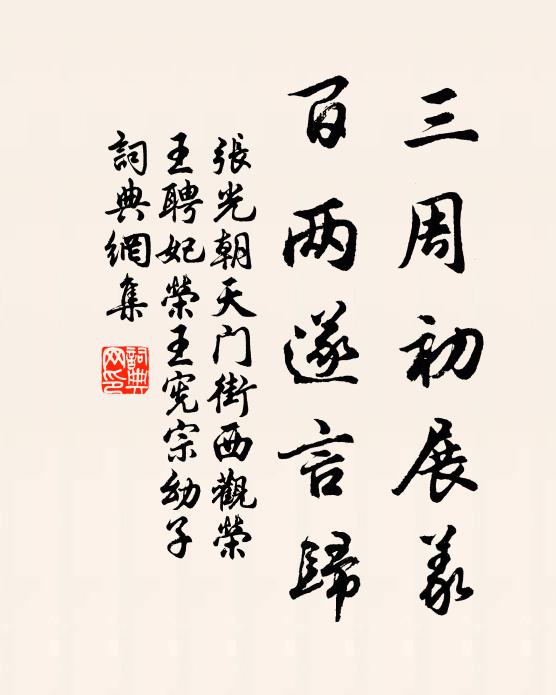 三周初展义
百两遂言歸
張光朝天门街西觀榮
王聘妃榮王宪宗幼子
詞典網集
詞典
网印